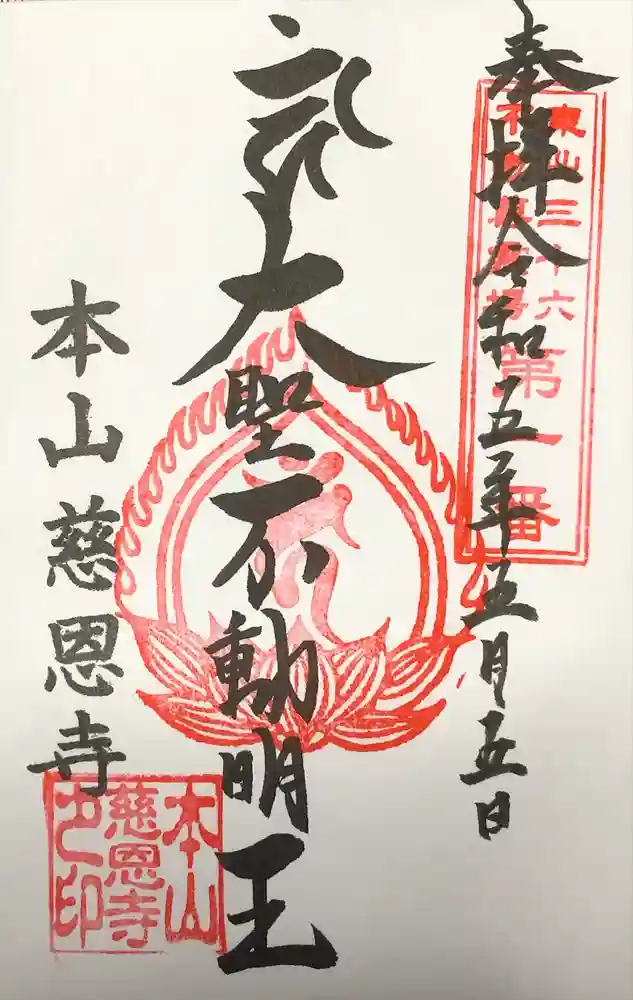 奉拝令和五年五月五日
東山三十六
不動尊霊場
第一番
大聖不動明王
本山慈恩寺
本山
慈恩寺
之印